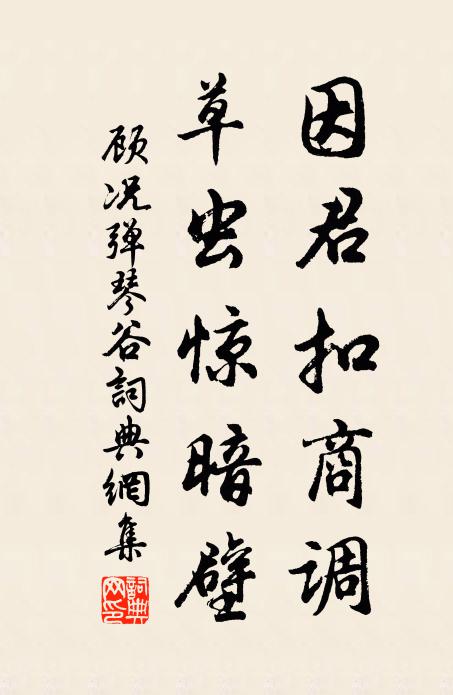 因君扣商调
草虫惊暗壁
顾况弹琴谷詞典網集
詞典网印